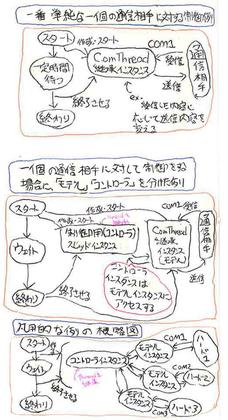 一番単純な一個の通信相手に対する制御例
スタート
作成・スタート
com1
一定時間
待つ
ComThread
継承インスタンス
受信
送信
通信相手
終わり
終了させる
ex.
受信した内容に
応じて送信内容を
変える
一個の通信相手に対して制御をする
場合に、「モデル」「コントローラ」を分けた例
スタート
作成・スタート
com1
受信
ウェイト
制御用(コントローラ)
スレッドインスタンス
ComThread
継承
インスタンス
(モデル)
通信相手
送信
コントローラ
インスタンスは
モデルインスタンスに
アクセスする
終わり
終了させる
汎用的な例の概略図
スタート
ウェイト
終わり
コントローラインスタンス
モデル
インスタンス
com1
ハード1
モデル
インスタンス
com2
ハード2
モデル
インスタンス
com3
ハード3